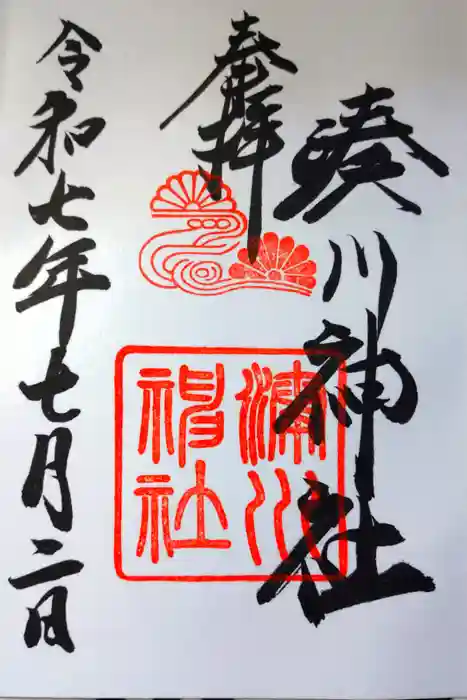 湊川神社
奉拝
湊川神社
令和七年七月二日